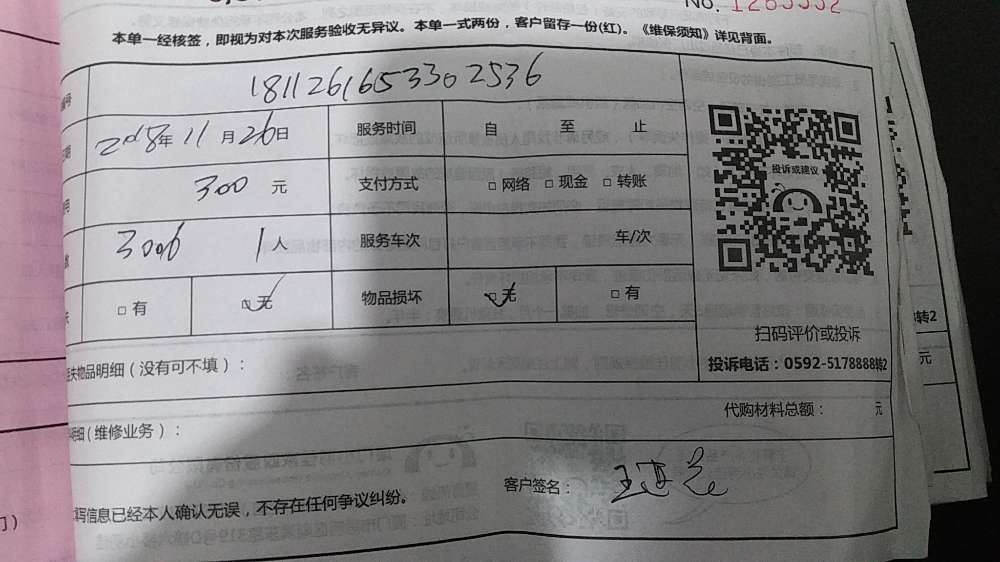 No. 1283332
本单一经核签，即视为对本次服务验收无异议。本单一式两份，客户留存一份(红)。《维保须知》详见背面。
号 1811261653302536
2018年11月26日 服务时间 自 至 止
300 元 支付方式 □ 网络 □ 现金 □ 转账
3006 1人 服务车次 车/次
□ 有 □ 无 物品损坏 □ 无 □ 有
投诉或建议
扫码评价或投诉
投诉电话：0592-5178888转2
失物品明细（没有可不填）：
代购材料总额： 元
明细（维修业务）：
客户签名：
写信息已经本人确认无误，不存在任何争议纠纷。
转2
元